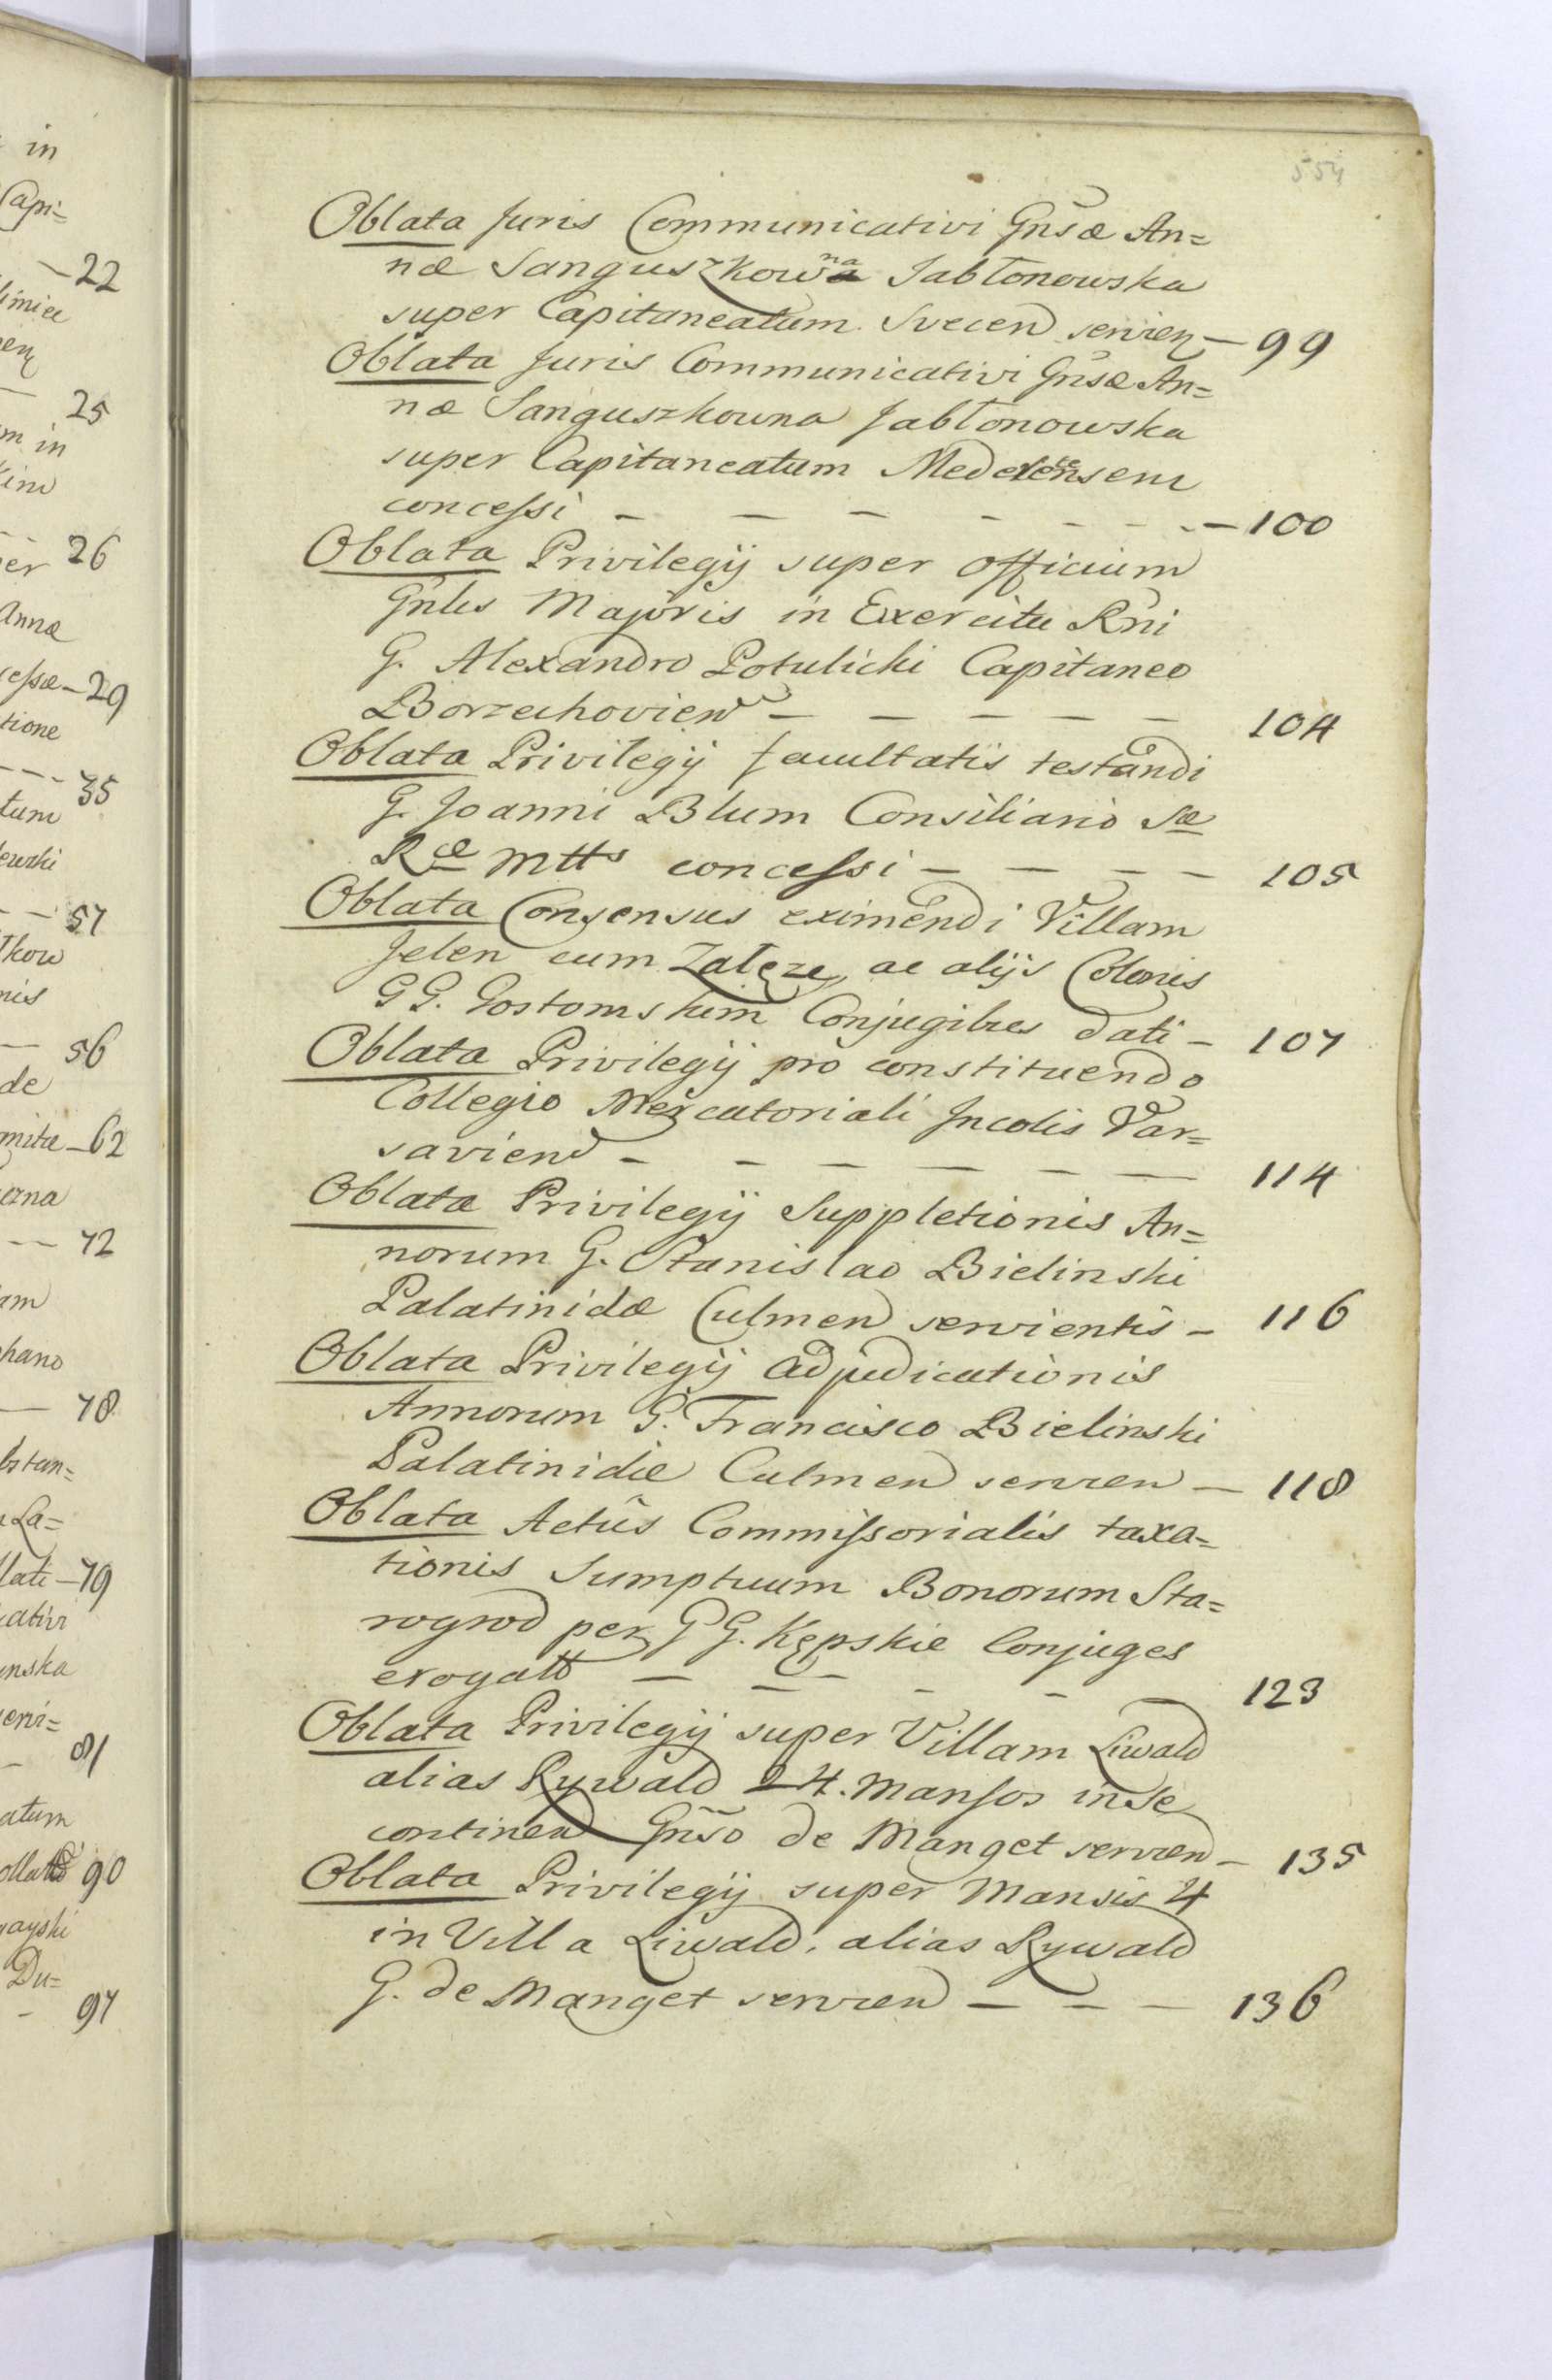 in
Capi=
—22
25
m in
26
er
Anna
—29
tione
35
tum
ewski
57
kow
nis
56
de
—62
72
am
hano
78
La=
—79
nska
81
atum
90
Du=
97
554
Oblata Juris Communicativi Gnsæ An=
næ Sanguszkowna Jabłonowska
super Capitaneatum Svecen servien — 99
Oblata Juris Communicativi Gnsæ An=
næ Sanguszkowna Jabłonowska
super Capitaneatum
concessi — — — — — — — 100
Oblata Privilegij super officium
Gnlis Majoris in Exercitu Rni
G. Alexandro Potulicki Capitaneo
Borzechovien — — — — — 104
Oblata Privilegij facultatis testandi
G. Joanni Blum Consiliario Sæ
Ræ Mtts concessi — — — — 105
Oblata Consensus eximendi Villam
Jelen cum Zalęze, ac alijs Colonis
GG. Gostomskim Conjugibus dati — 107
Oblata Privilegij pro constituendo
Collegio Mercatoriali Incolis Var=
savien — — — — — — 114
Oblata Privilegij Suppletionis An=
norum G. Stanislao Bielinski
Palatinidæ Culmen servientis — 116
Oblata Privilegij adjudicationis
Annorum G. Francisco Bielinski
Palatinidæ Culmen servien — 118
Oblata Actûs Commissorialis taxa=
tionis Sumptuum Bonorum Sta=
rogrod per GG. Kępskie Conjuges
erogatt — — — — — — 123
Oblata Privilegij super Villam Liwald
alias Rywald 24. Mansos in se
continen Gnso de Manget servien — 135
Oblata Privilegij super Mansis 4
in Villa Liwald, alias Rywald
G. de Manget servien — — — 136